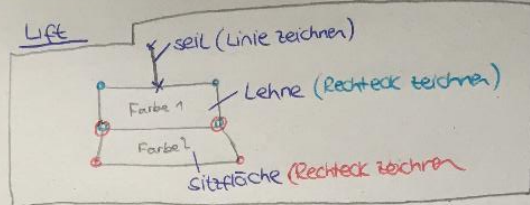 Lift
Seil (Linie zeichnen)
Lehne (Rechteck zeichnen)
Farbe 1
Farbe 2
Sitzfläche (Rechteck zeichnen